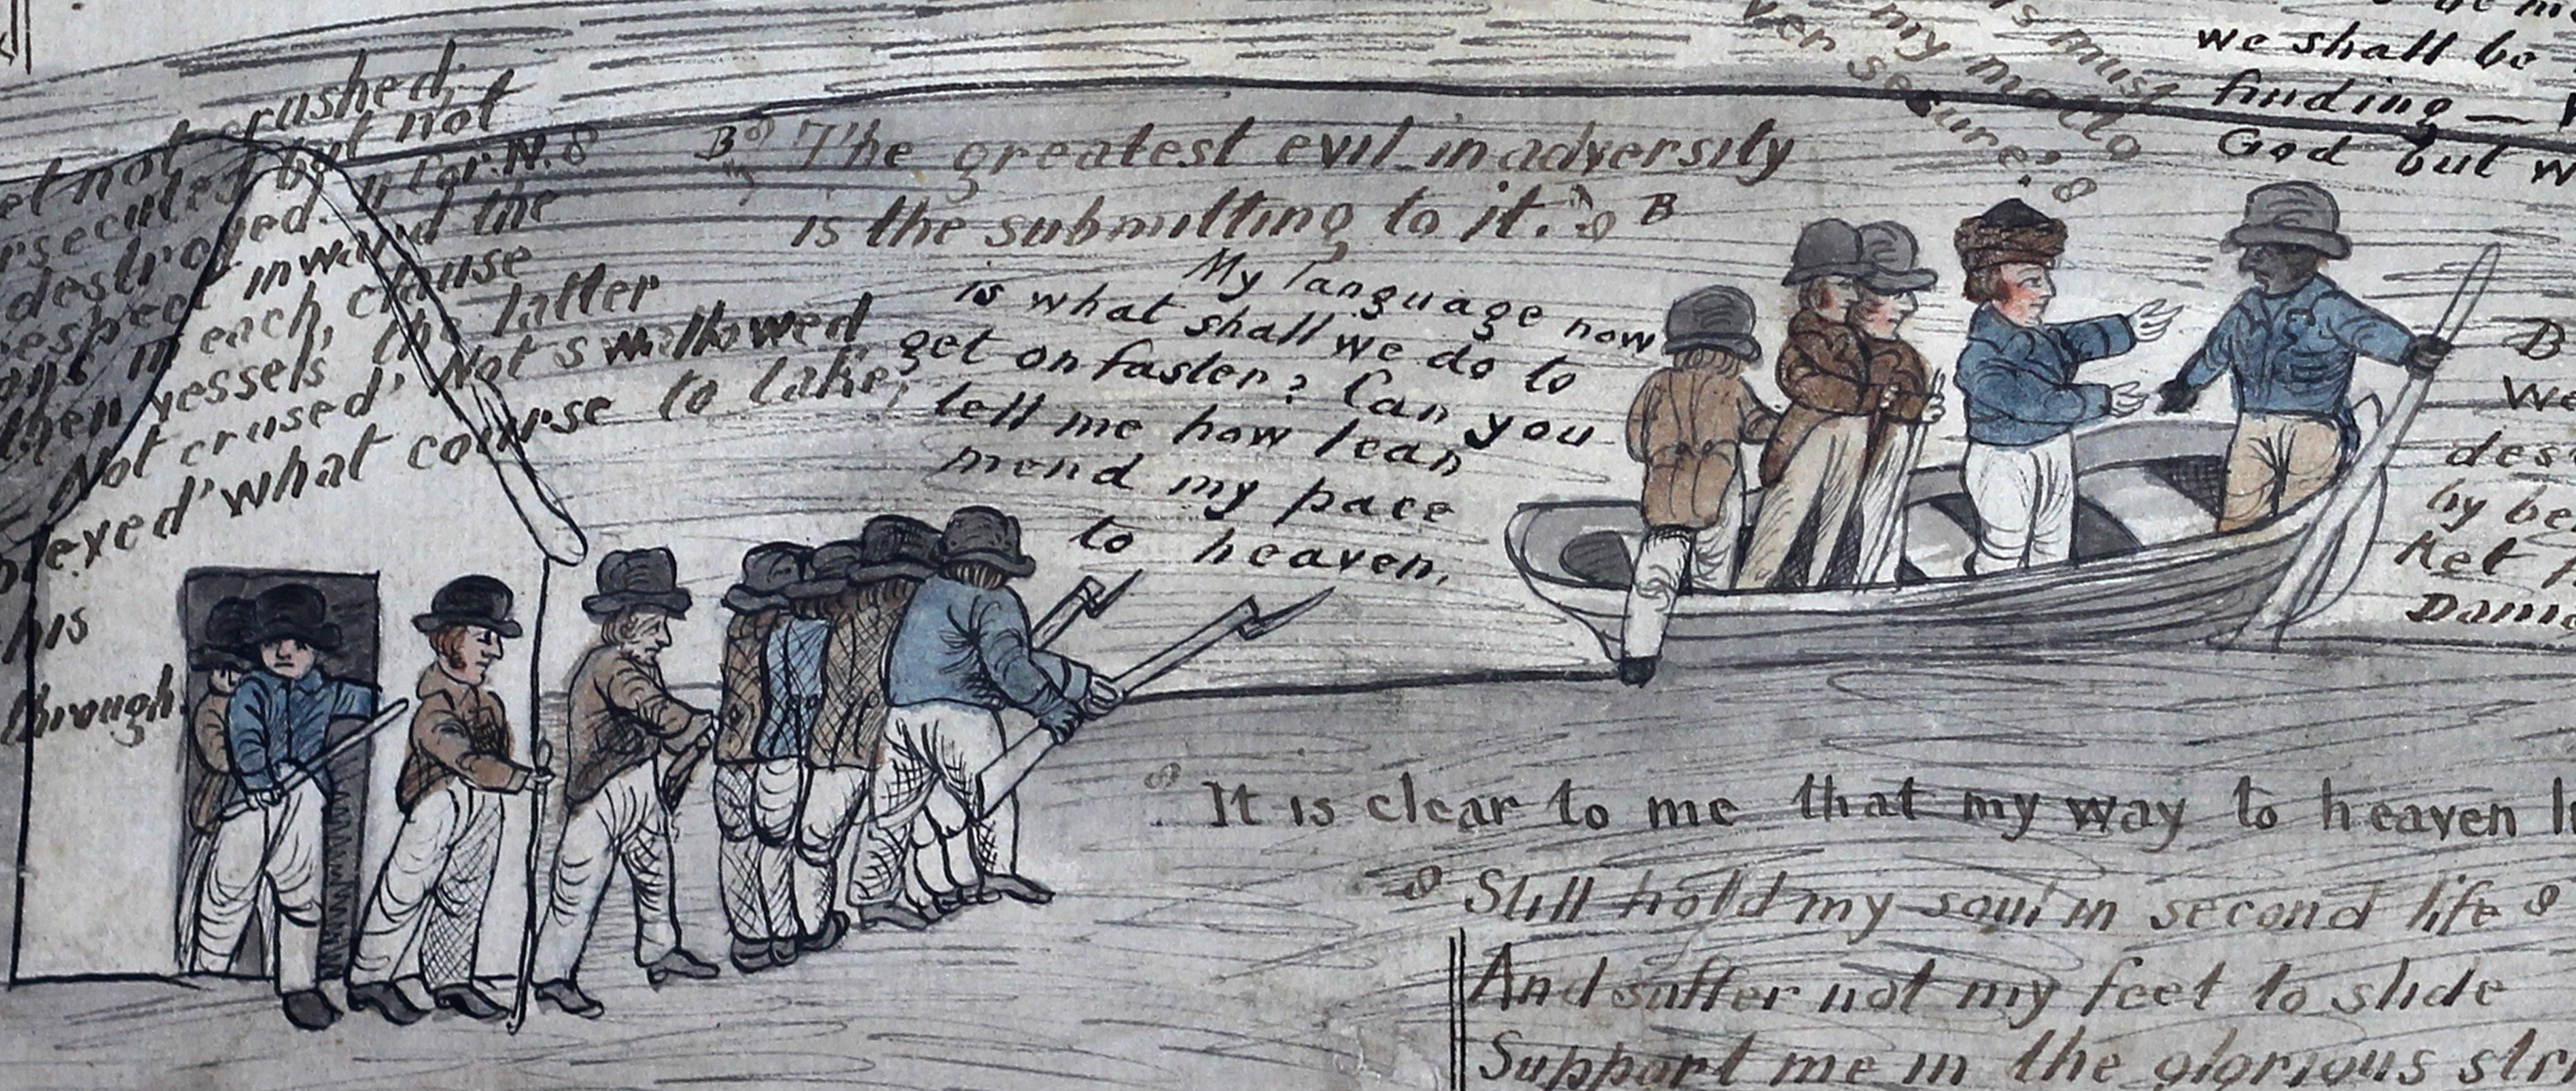 et not crushed;
rsecuted but not
destroyed. II Cor. N. 8
respect inward the
ant in each, clause
then vessels the latter
Not crused' Not swallowed
eyed' what course to take,
his
through.
B 8 The greatest evil in adversity
is the submitting to it. 8 B
My language now
is what shall we do to
get on faster? Can you
tell me how Ican
mend my pace
to heaven.
is must
my motto
ver secure? 8
we shall be
finding —
God but w
B
We
des
by be
Ket
Danie
8 It is clear to me that my way to heaven
8 Still hold my soul in second life 8
And suffer not my feet to slide
Support me in the glorious str